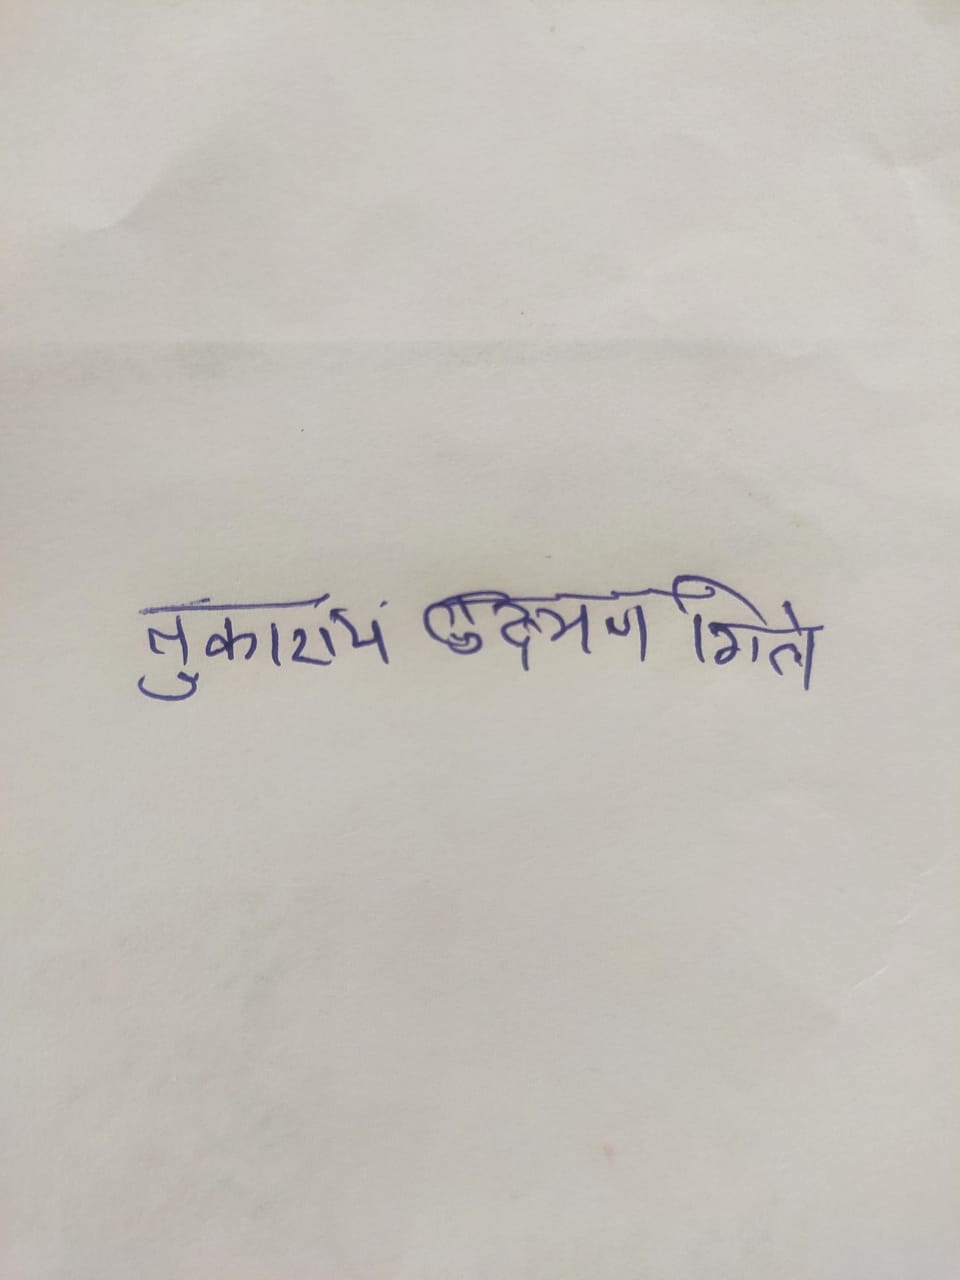 तुकाराम लक्ष्मण गिते